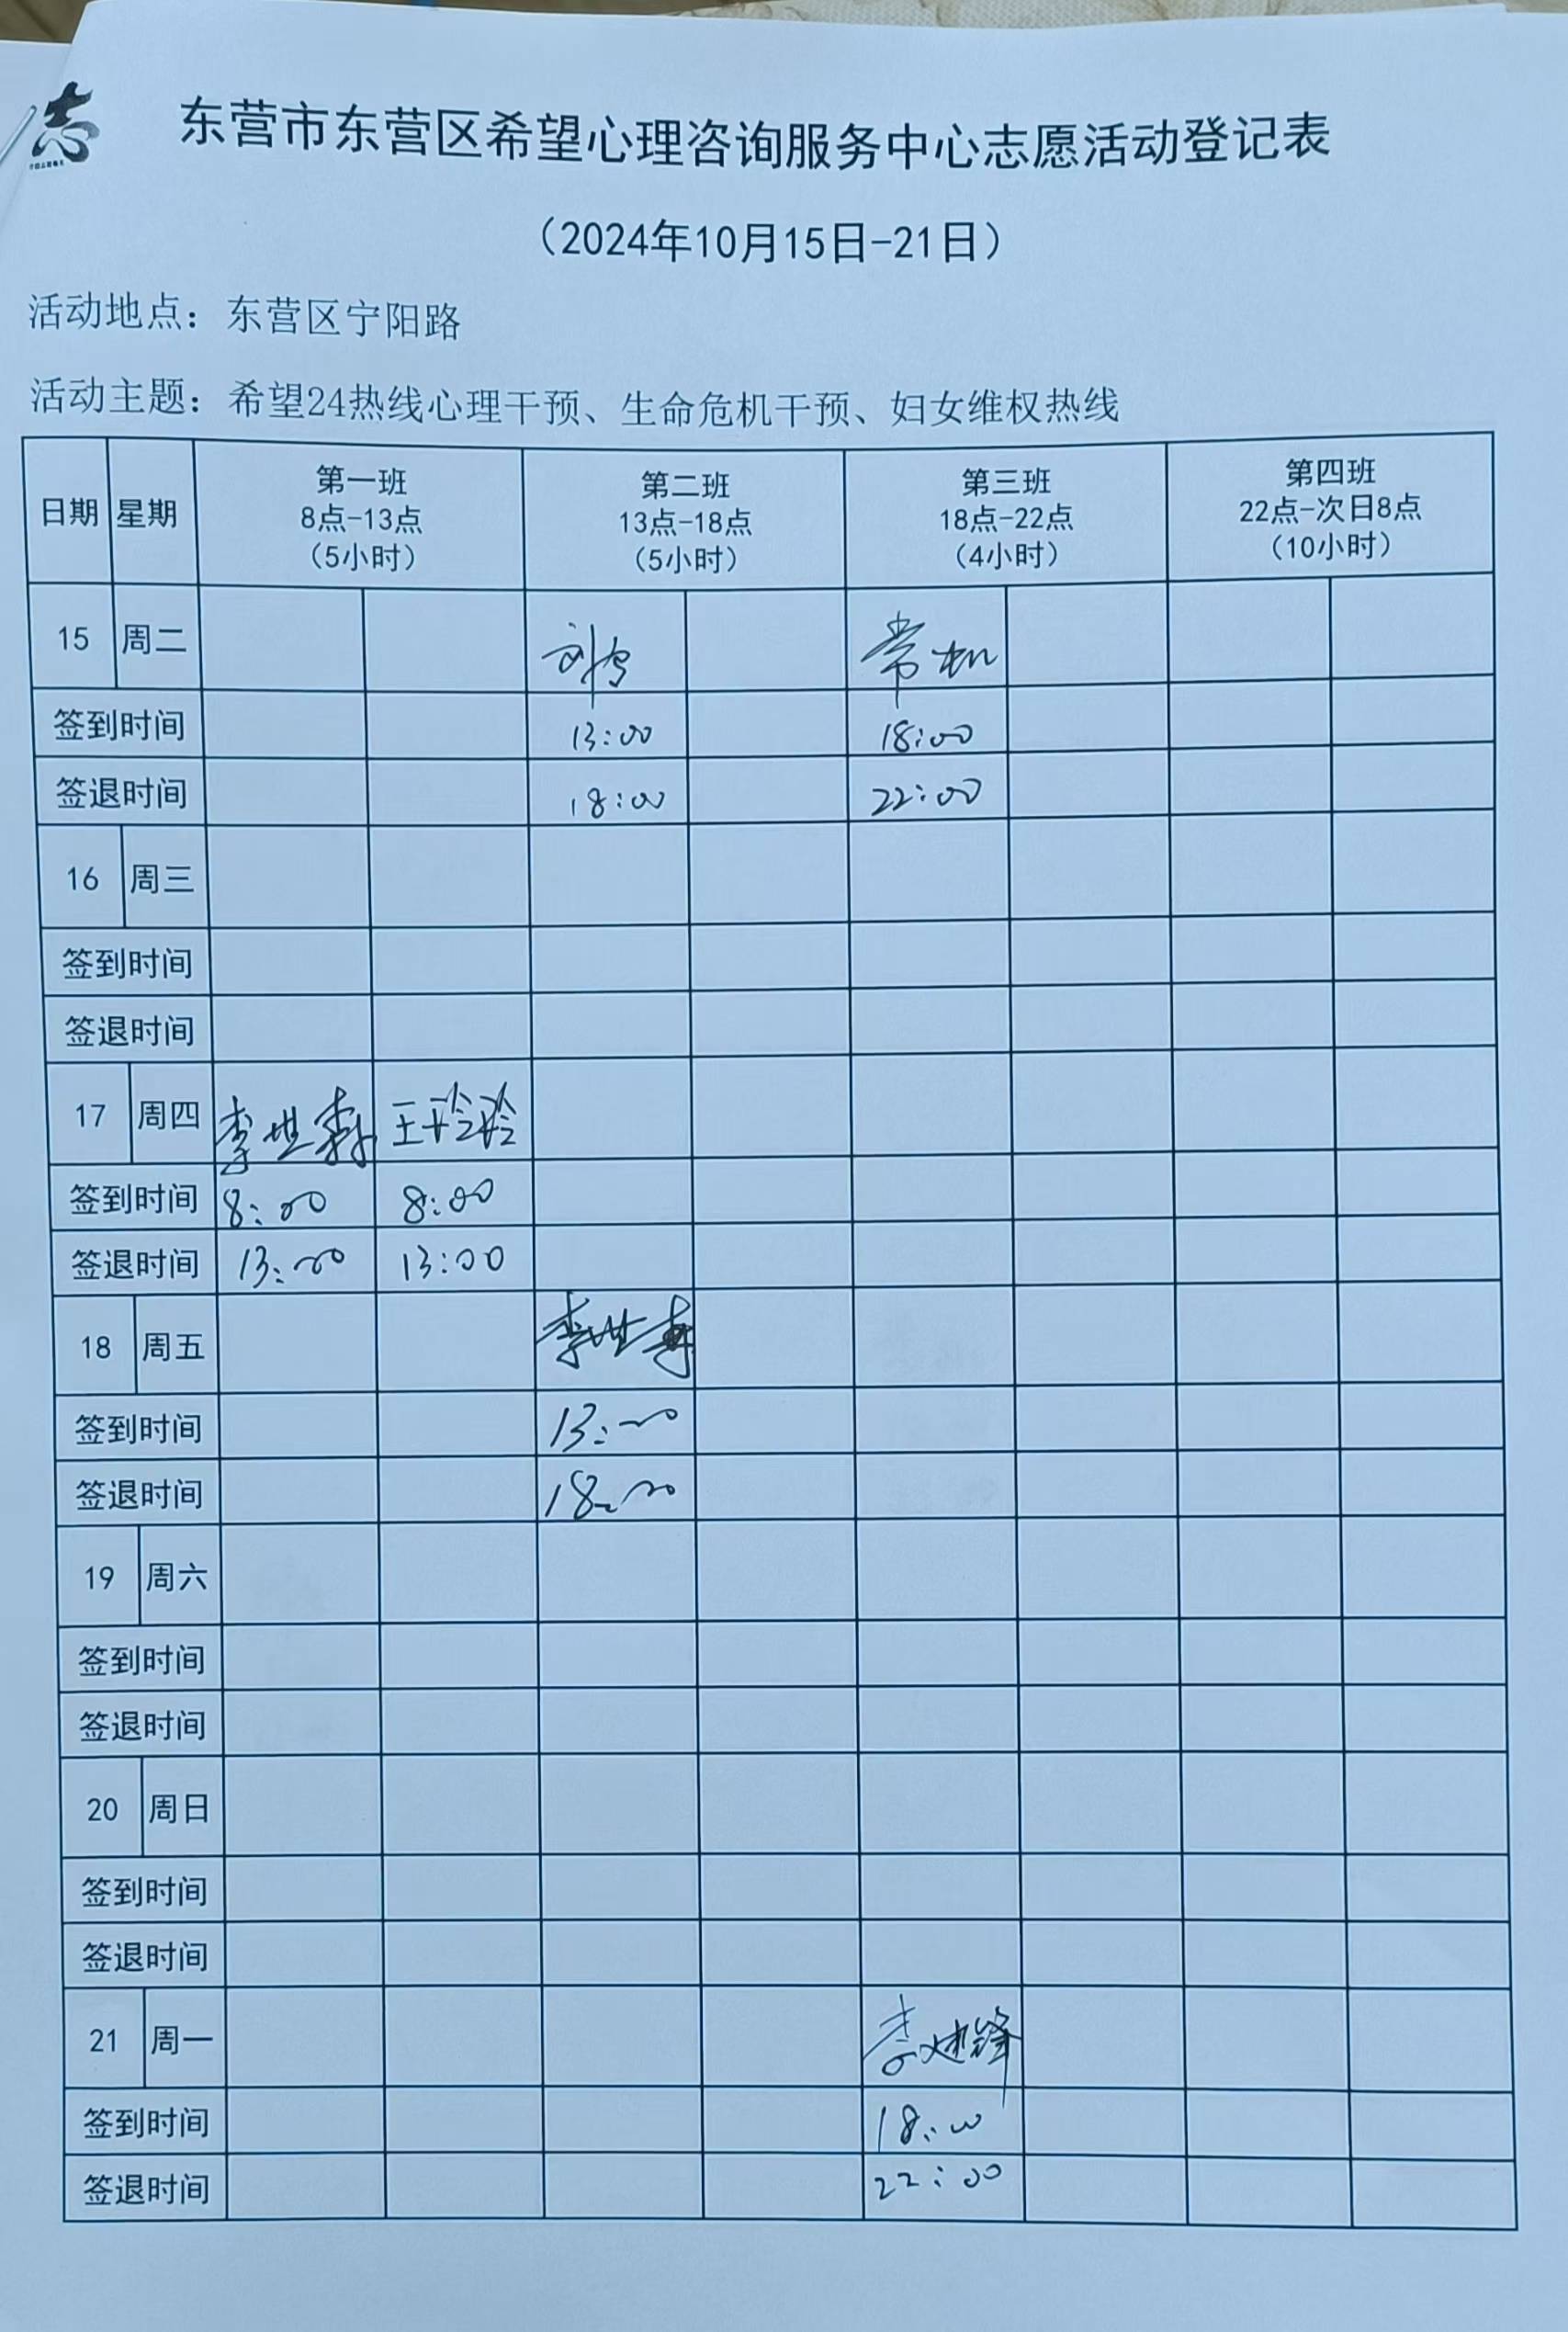 志
东营市东营区希望心理咨询服务中心志愿活动登记表
（2024年10月15日-21日）
活动地点：东营区宁阳路
活动主题：希望24热线心理干预、生命危机干预、妇女维权热线
日期 星期 第一班 8点-13点 （5小时） 第二班 13点-18点 （5小时） 第三班 18点-22点 （4小时） 第四班 22点-次日8点 （10小时）
15 周二 刘 常
签到时间 13:00 18:00
签退时间 18:00 22:00
16 周三
签到时间
签退时间
17 周四 李世 王玲玲
签到时间 8:00 8:00
签退时间 13:00 13:00
18 周五 李世
签到时间 13:00
签退时间 18:00
19 周六
签到时间
签退时间
20 周日
签到时间
签退时间
21 周一 李建锋
签到时间 18:00
签退时间 22:00